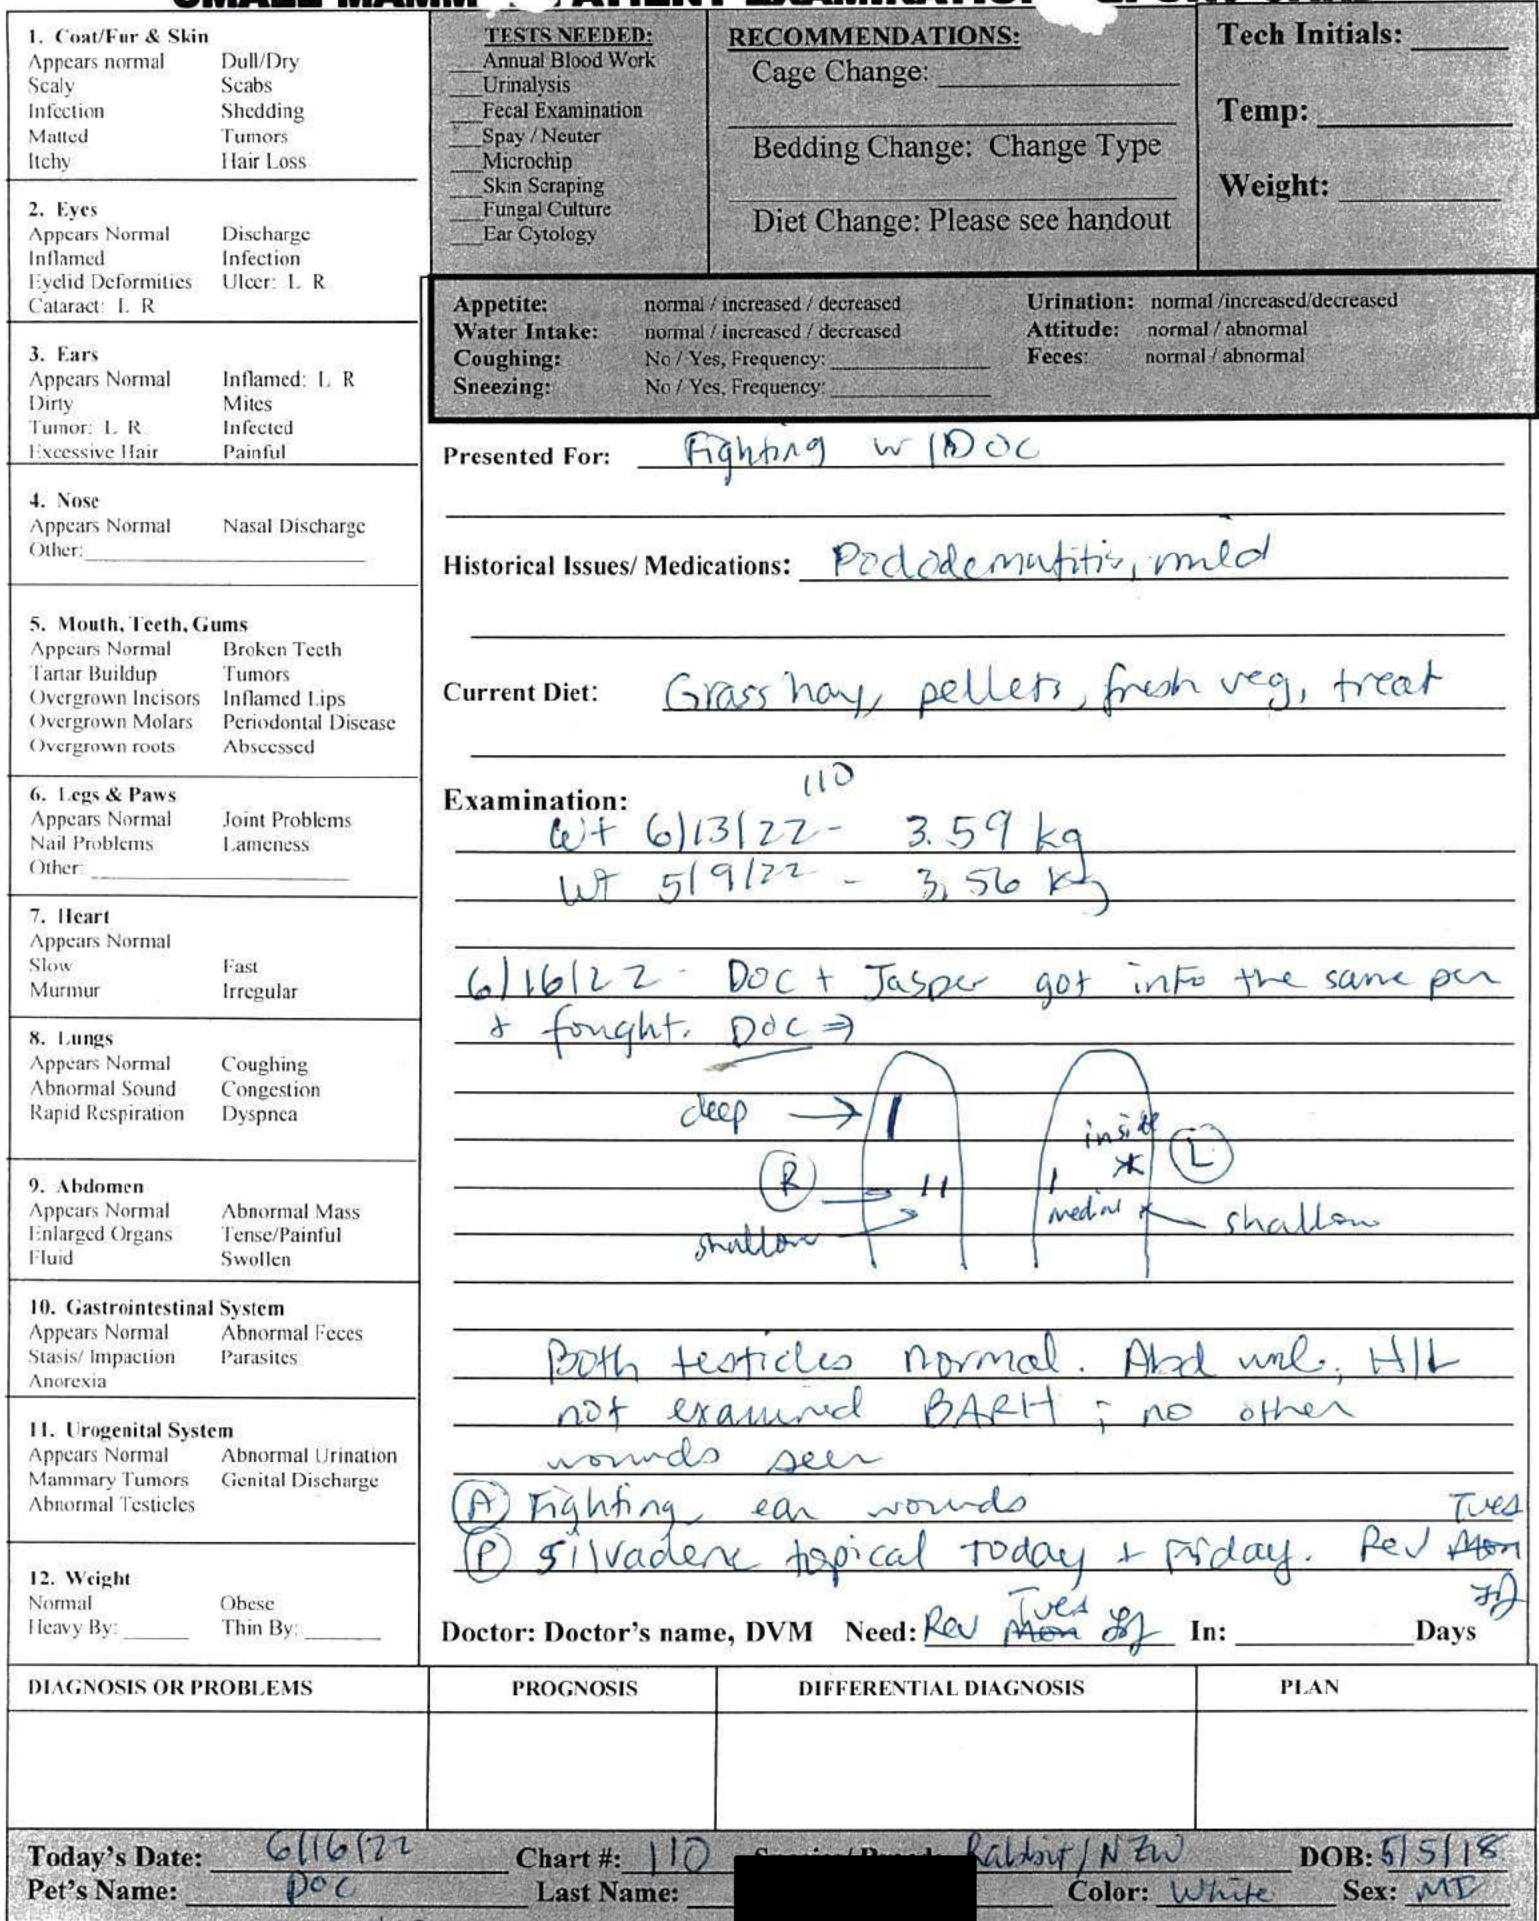 1. Coat/Fur & Skin
Appears normal Dull/Dry
Scaly Scabs
Infection Shedding
Matted Tumors
Itchy Hair Loss
2. Eyes
Appears Normal Discharge
Inflamed Infection
Eyelid Deformities Ulcer: L R
Cataract: L R
3. Ears
Appears Normal Inflamed: L R
Dirty Mites
Tumor: L R Infected
Excessive Hair Painful
4. Nose
Appears Normal Nasal Discharge
Other:
5. Mouth, Teeth, Gums
Appears Normal Broken Teeth
Tartar Buildup Tumors
Overgrown Incisors Inflamed Lips
Overgrown Molars Periodontal Disease
Overgrown roots Abscessed
6. Legs & Paws
Appears Normal Joint Problems
Nail Problems Lameness
Other:
7. Heart
Appears Normal
Slow Fast
Murmur Irregular
8. Lungs
Appears Normal Coughing
Abnormal Sound Congestion
Rapid Respiration Dyspnea
9. Abdomen
Appears Normal Abnormal Mass
Enlarged Organs Tense/Painful
Fluid Swollen
10. Gastrointestinal System
Appears Normal Abnormal Feces
Stasis/ Impaction Parasites
Anorexia
11. Urogenital System
Appears Normal Abnormal Urination
Mammary Tumors Genital Discharge
Abnormal Testicles
12. Weight
Normal Obese
Heavy By: Thin By:
TESTS NEEDED:
Annual Blood Work
Urinalysis
Fecal Examination
Spay / Neuter
Microchip
Skin Scraping
Fungal Culture
Ear Cytology
RECOMMENDATIONS:
Cage Change:
Bedding Change: Change Type
Diet Change: Please see handout
Tech Initials:
Temp:
Weight:
Appetite: normal / increased / decreased Urination: normal /increased/decreased
Water Intake: normal / increased / decreased Attitude: normal / abnormal
Coughing: No / Yes, Frequency: Feces: normal / abnormal
Sneezing: No / Yes, Frequency:
Presented For: Fighting w/ DOC
Historical Issues/ Medications: Pododematitis, mild
Current Diet: Grass hay, pellets, fresh veg, treat
110
Examination:
Wt 6/13/22 - 3.59 kg
Wt 5/9/22 - 3.56 kg
6/16/22 - DOC + Jasper got into the same pen
+ fought. DOC ⇒
deep →
inside
R L
medial
shallow shallow
Both testicles normal. Abd wnl; H/L
not examined BARH ; no other
wounds seen
A Fighting, ear wounds
Tues
P Silvadene topical today + Friday. Rev Mon
Tues
Doctor: Doctor's name, DVM Need: Rev Mon In: Days
DIAGNOSIS OR PROBLEMS PROGNOSIS DIFFERENTIAL DIAGNOSIS PLAN
Today's Date: 6/16/22 Chart #: 110 Rabbit / NZW DOB: 5/5/18
Pet's Name: DOC Last Name: Color: White Sex: MI